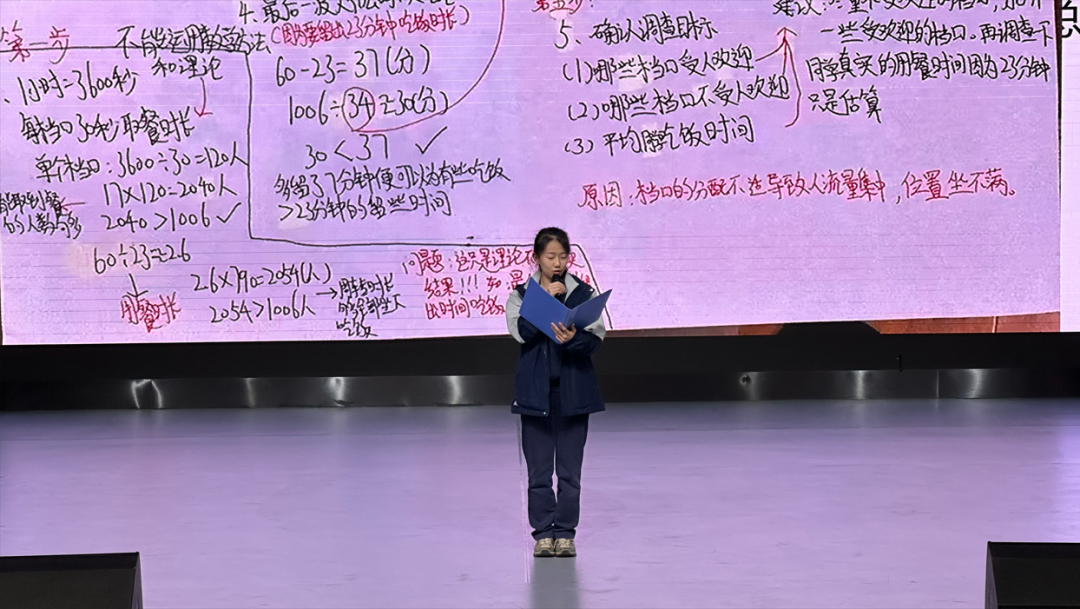 第一步 不能运用数学方法
和理论
1小时=3600秒
每档口30秒取餐时长
单个档口:3600÷30=120人
17×120=2040人
2040>1006 ✓
的人数与多
60÷23=2.6
用餐时长
2.6×790=2054(人)
2054>1006人
吃饭
4、最后一波
(因为要留出23分钟吃饭时长)
60-23=37(分)
1006÷34=30(分)
30<37 ✓
多留了7分钟便可以为有些吃饭
>23分钟的留些时间
问题:这只是理论
结果!!!
出时间吃饭
第五步:
5、确认调查目标
(1)哪些档口受人欢迎
(2)哪些档口不受人欢迎
(3)平均用餐吃饭时间
建议:
一些受欢迎的档口。再调查下
同学真实的用餐时间因为23分钟
只是估算
原因:档口的分配不均导致人流量集中,位置坐不满。
总